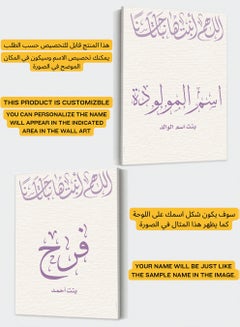 هذا المنتج قابل للتخصيص حسب الطلب
يمكنك تخصيص الاسم وسيكون في المكان
الموضح في الصورة
THIS PRODUCT IS CUSTOMIZBLE
YOU CAN PERSONALIZE THE NAME
WILL APPEAR IN THE INDICATED
AREA IN THE WALL ART
اسم المولودة
بنت اسم الوالد
فرح
بنت احمد
سوف يكون شكل اسمك على اللوحة
كما يظهر هذا المثال في الصورة
YOUR NAME WILL BE JUST LIKE
THE SAMPLE NAME IN THE IMAGE.